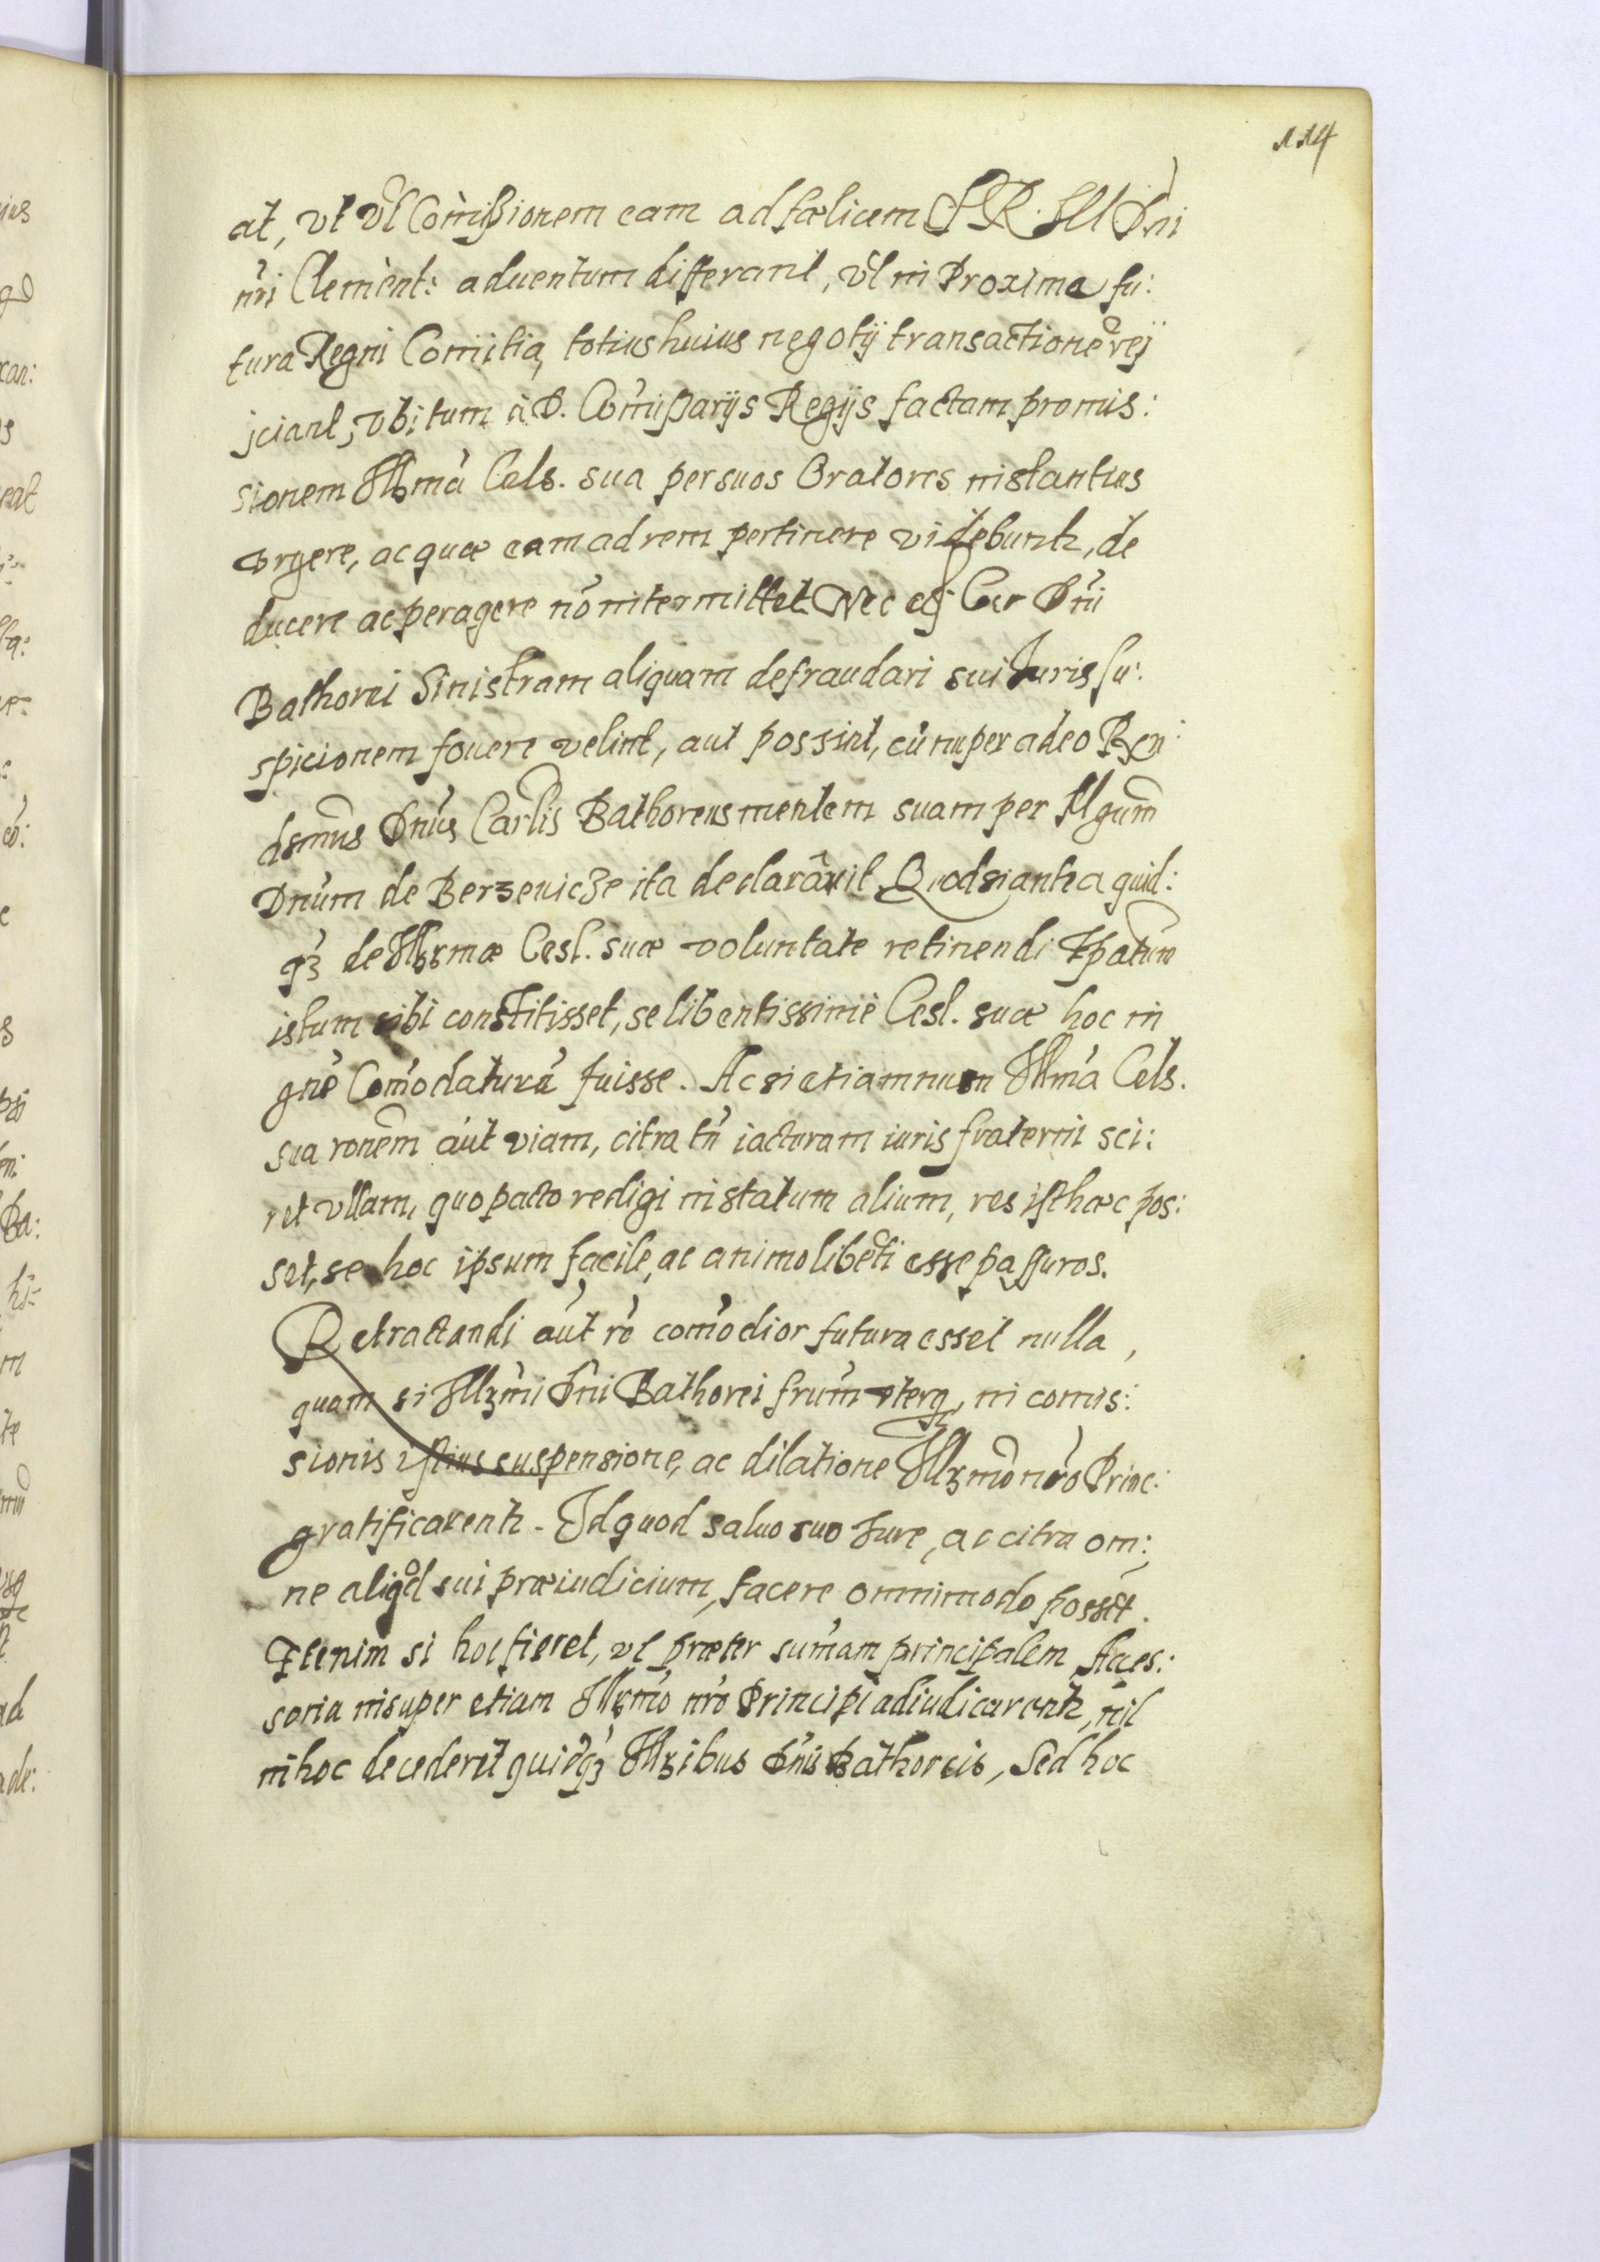 114
at, vt vl Comissionem eam ad fœlicem S R. M Dni
nri Clement: aduentum differant, vl in Proxima fu:
tura Regni Comitia, totius huius negotij transactionē reij
jciant, vbi tum à D. Comissarijs Regijs factam promis:
sionem Illma Cels. sua per suos Oratores instantius
vrgere, ac quæ eam ad rem pertinere videbunt, de
ducere ac peragere nō intermittet Nec est Cur Dni
Bathorei Sinistram aliquam defraudari sui Iuris su:
spicionem fouere velint, aut possint, cū nuper adeo Ren:
dsmus Dnus Carlis Bathoreus mentem suam per Mgum
Dnum de Berzeuicze ita declarauit Quod si antea quid:
q3 de Illmæ Cesl. suæ voluntate retinendi Ipatum
istum sibi constitisset, se libentissimè Cesl. suæ hoc in
gne Comodaturū fuisse. Ac si etiamnum Illma Cels.
sua ronem aut viam, citra tn iacturam iuris fraterni sci:
ret vllam, quo pacto redigi in statum alium, res isthæc pos:
set, se hoc ipsum facile, ac animo libēti esse passuros.
Retractandi aut ro comodior futura esset nulla,
quam si Illmi Dni Bathorei frum vterq3, in comis:
sionis istius suspensione, ac dilatione Illmo nro Princ:
gratificarent. Id quod saluo suo Iure, ac citra om:
ne aliqd sui præiudicium, facere omnimodo possēt.
Etenim si hoc fieret, vt præter sumam principalem Acces:
soria insuper etiam Illmo nro Principi adiudicarent, nil
in hoc decederet quicq3 Illribus Dnis Bathoreis, Sed hoc